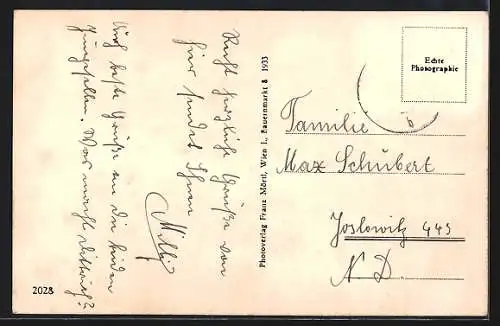 Recht herzliche Grüße von
hier sendet Ihnen
Milly
Auch beste Grüße an die beiden
Was macht
2028
Photoverlag Franz Mörtl, Wien I., Bauernmarkt 8 1933
Echte
Photographie
Familie
Max Schubert
Joslowitz 445
N D